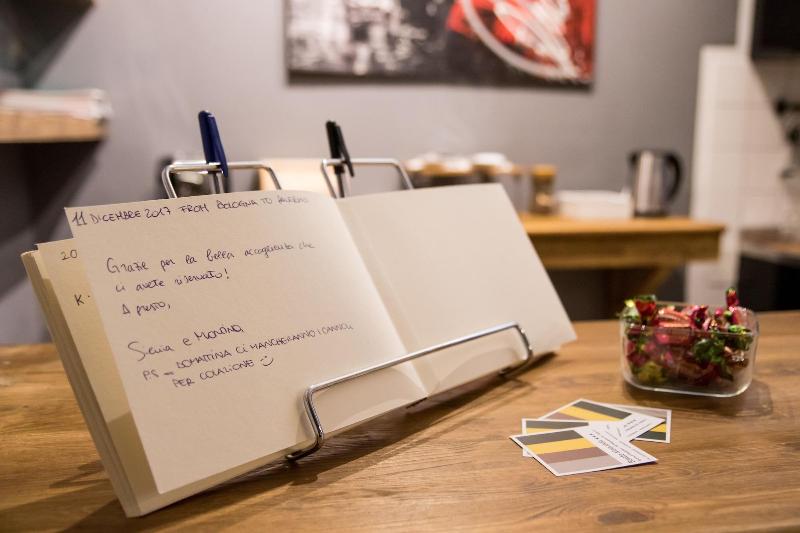 11 DICEMBRE 2017 FROM BOLOGNA TO PALERMO
Grazie per la bella accoglienza che
ci avete riservato!
A presto,
e
P.S = DOMATTINA CI MANCHERANNO I CANNOLI
PER COLAZIONE :)
20
K.